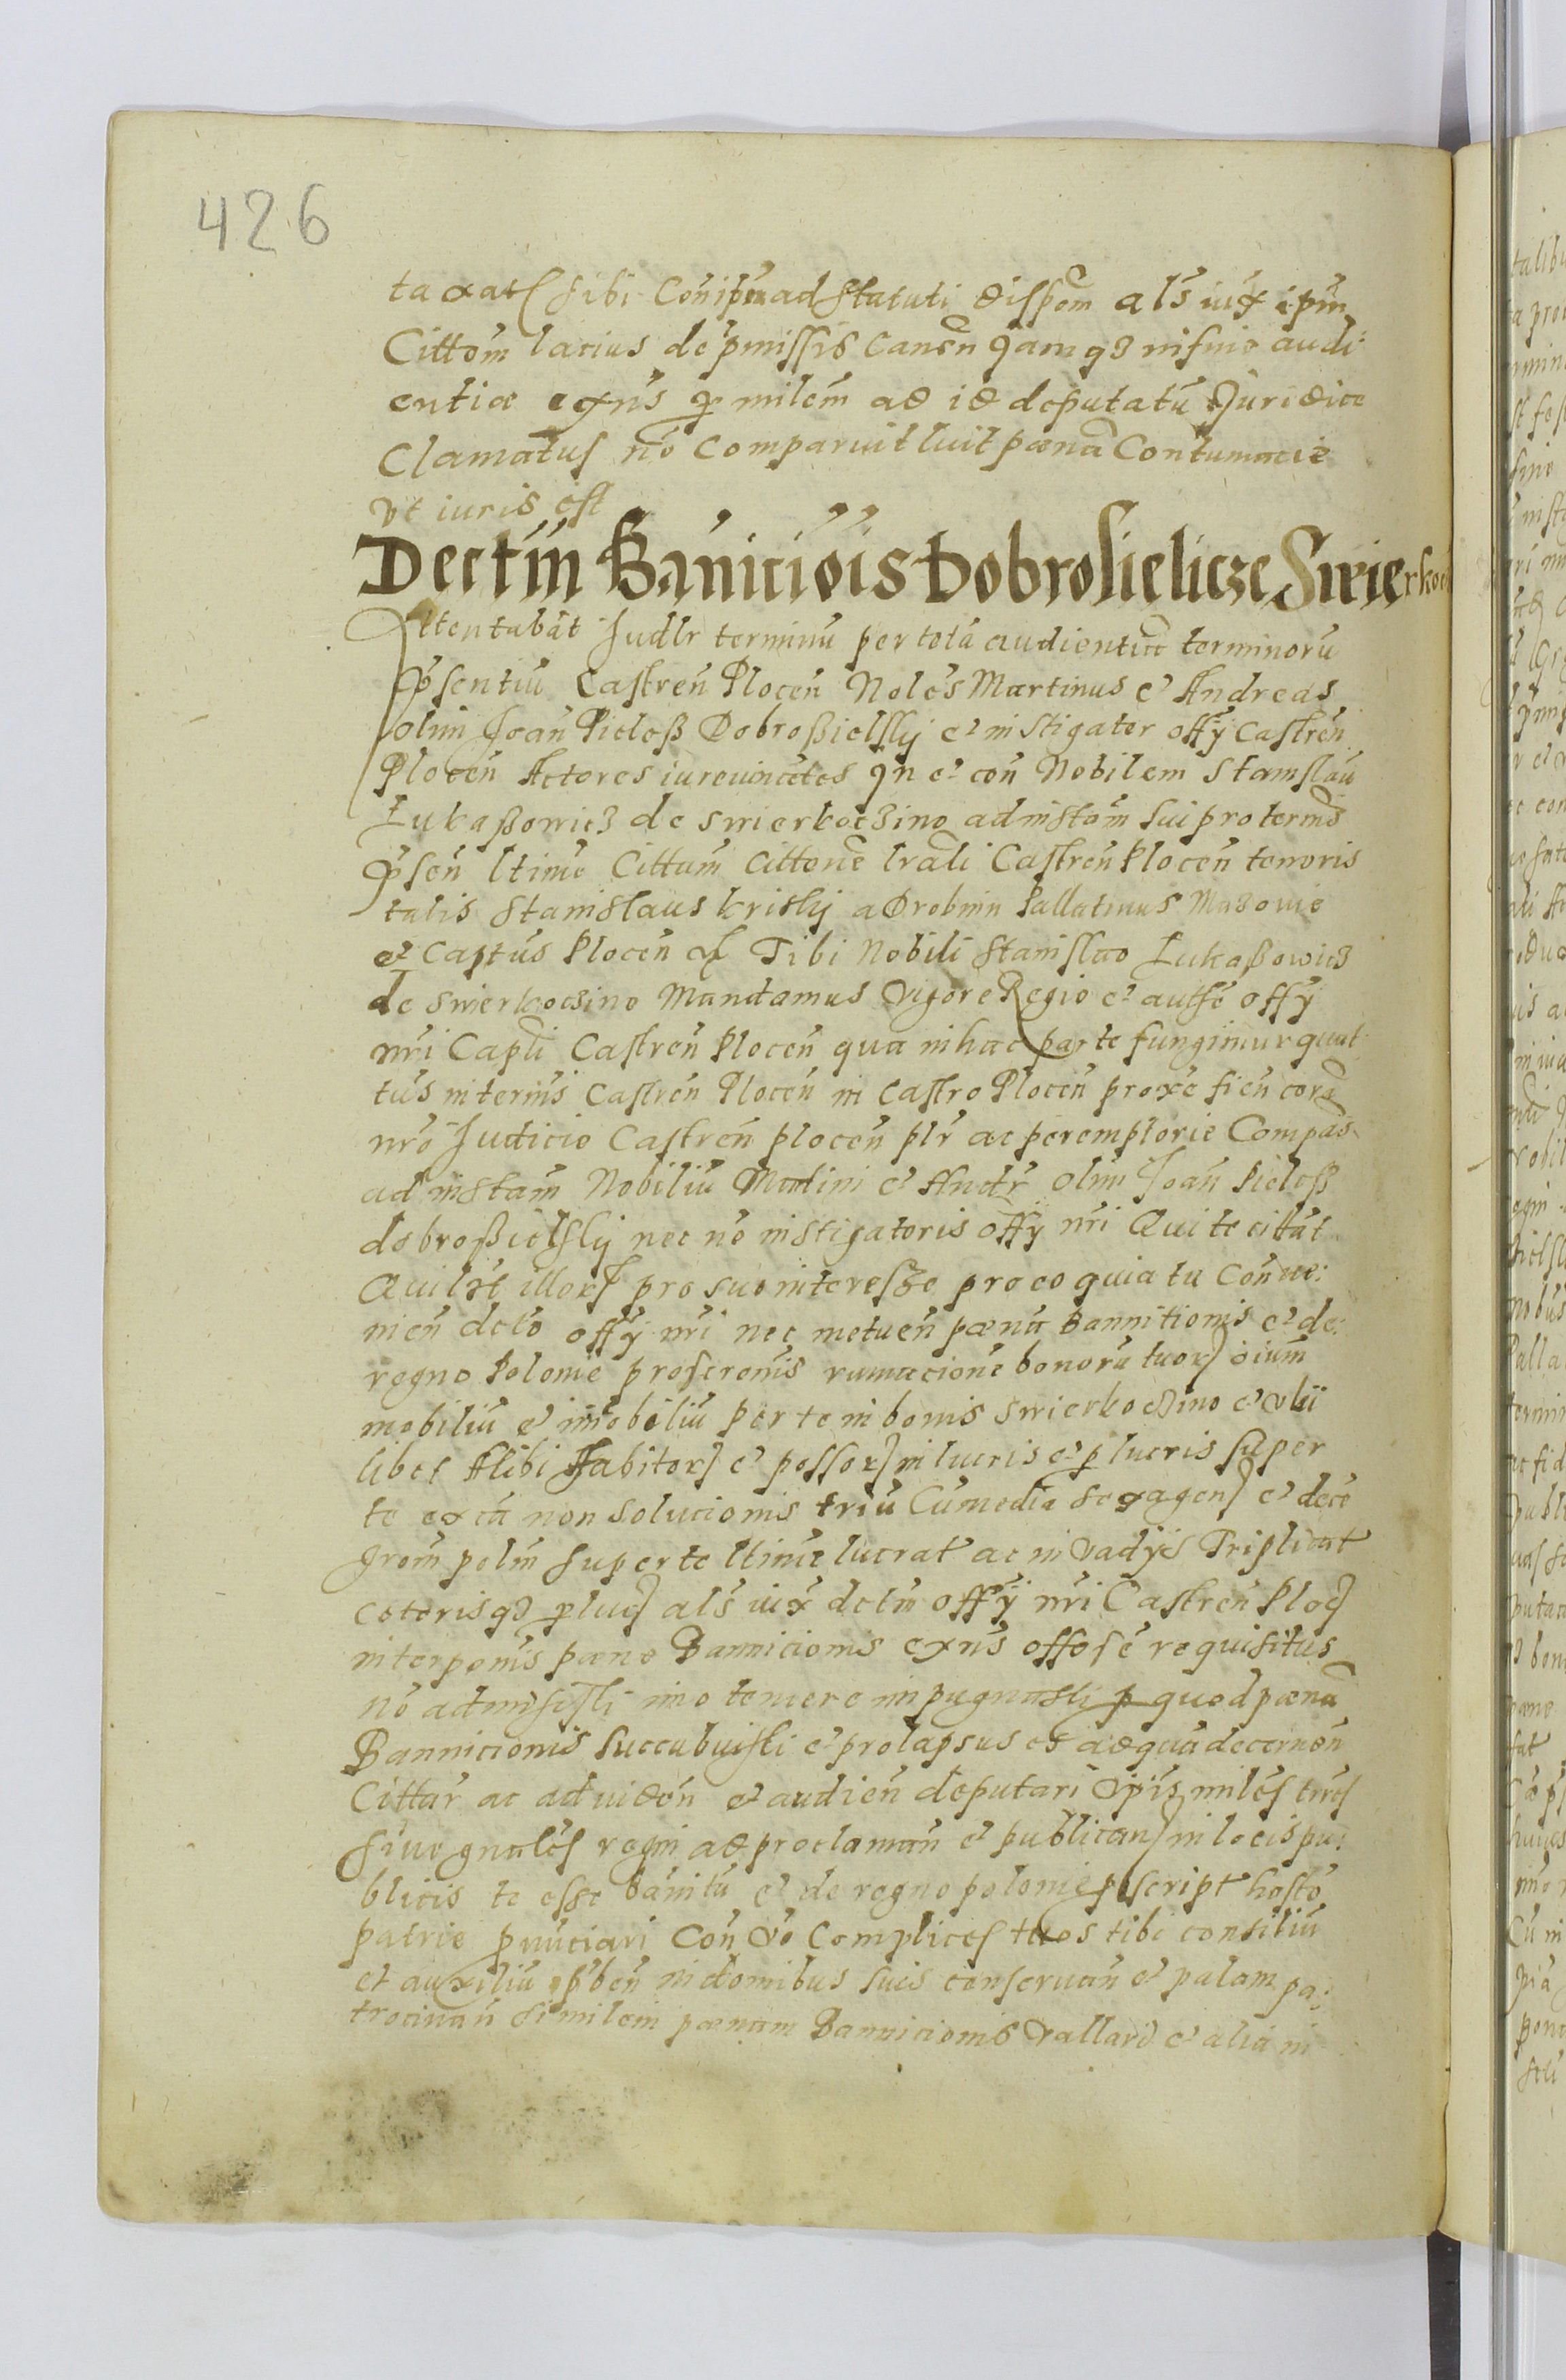 426
taxat sibi ad statuti dispom als iux ipm
Cittom latius de pmissis canen qamqз in fine audi
entiae exns p milem ad id deputatu Juridice
Clamatus no comparuit luit paena Contumacie
vt iuris est
Dectm Banitiois Dobrosielicze Swierkoc
Attentabat Judlr terminu per tota audientia terminoru
psentiu Castren Plocen Noles Martinus et Andreas
olim Joan Pieloß Dobroßielski et instigator offy Castren
Plocen Actores iurevincetes Jn et con Nobilem Stanislau
Lukaßowicz de swierkoczino ad instam sui pro termo
psen ltime Cittum Cittone lrali Castren Plocen tenoris
talis Stanislaus kriski a Drobnin Pallatinus Mazovie
et Captus Plocen Tibi Nobili Stanislao Lukaßowicz
de swierkoczino Mandamus vigore Regio et authe offy
nri Capli Castren Plocen qua in hac parte fungimur quat
tus in ternis Castren Plocen in Castro Plocen proxe fien cora
nro Judicio Castren plocen plr ac peremptorie Compas
ad instam Nobiliu Matini et Andr olim Joan Pieloß
dobroßielski nec no instigatoris offy nri Qui te citat
Quilt illor pro suo interesze pro eo quia tu Conue:
nien dcto offy nri nec metuen paena Bannitionis et de:
regno Polonie proscronis rumacione bonoru tuor oium
mobiliu et imobiliu per te in bonis swierkoczino et vbi
libet Alibi Habitor et possor in lucris et p lucris super
te ex ca non solucionis triu Cu media sexagen et dece
grom polm super te ltime lucrat ac in vadys Triplicat
ceterisqз pluc als iux dctm offy nri Castren Ploc
interponis paene Bannicionis exns offose requisitus
no admisisti imo temere impugnasti p quod paena
Bannicionis succubuisti et prolapsus es ad qua decernen
Cittar ac ad viden et audien deputari miles tres
siue gnales regni ad proclaman et publican in locis pu:
blicis te esse banitu et de regno polonie pscript hoste
patrie pnuciari Con vo Complices tuos tibi consiliu
et auxiliu pben in domibus suis conseruan et palam pa:
trocinan similem paenam Bannicionis vallari et alia in